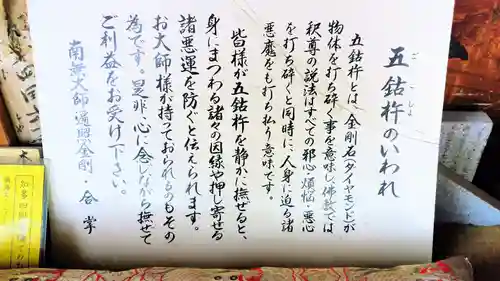 五鈷杵のいわれ
ごこしょ
五鈷杵とは、金剛石(ダイヤモンド)が
物体を打ち砕く事を意味し、佛教では
釈尊の説法はすべての邪心・煩悩・悪心
を打ち砕くと同時に、人身に迫る諸
悪魔をも打ち払う意味です。
皆様が五鈷杵を静かに撫せると、
身にまつわる諸々の因縁や押し寄せる
諸悪運を防ぐと伝えられます。
お大師様が持っておられるのもその
為です。是非、心に念じながら撫せて
ご利益をお受け下さい。
南無大師遍照金剛・合掌